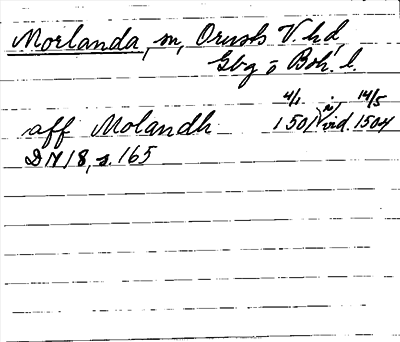 Morlanda, sn, Orusts V. hd,
Gbg o Boh. l.
4/1 . 14/5
aff Molandh 1501 (no) vid. 1504
DN 18, s. 165